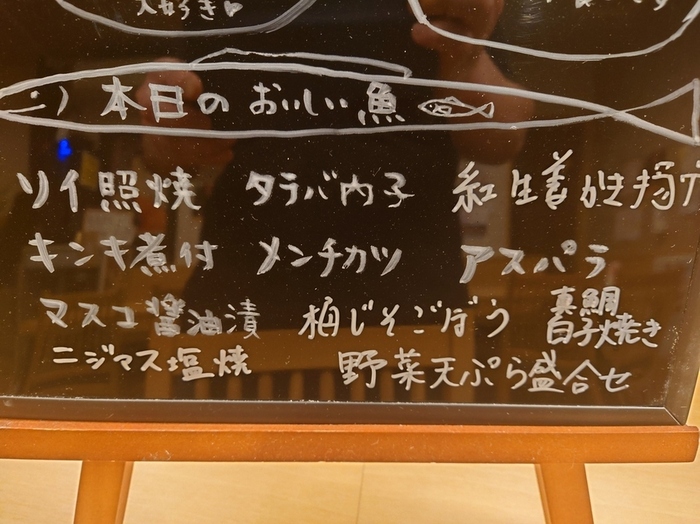 大好き♡
本日のおいしい魚
ソイ照焼 タラバ内子 紅生姜かき揚げ
キンキ煮付 メンチカツ アスパラ
マスコ醤油漬 梅じそごぼう 真鯛白子焼き
ニジマス塩焼 野菜天ぷら盛合せ